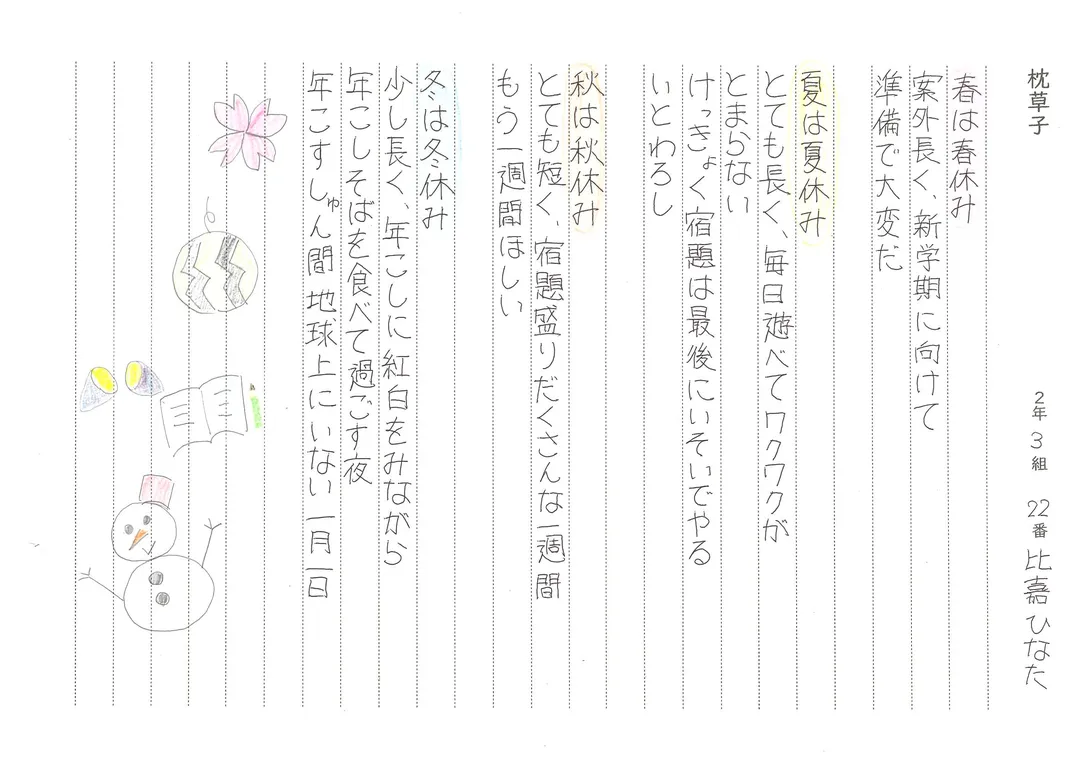 枕草子
2年3組 22番 比嘉ひなた
春は春休み
案外長く、新学期に向けて
準備で大変だ
夏は夏休み
とても長く、毎日遊べてワクワクが
とまらない
けっきょく宿題は最後にいそいでやる
いとわろし
秋は秋休み
とても短く、宿題盛りだくさんな一週間
もう一週間ほしい
冬は冬休み
少し長く、年こしに紅白をみながら
年こしそばを食べて過ごす夜
年こすしゅん間地球上にいない一月一日